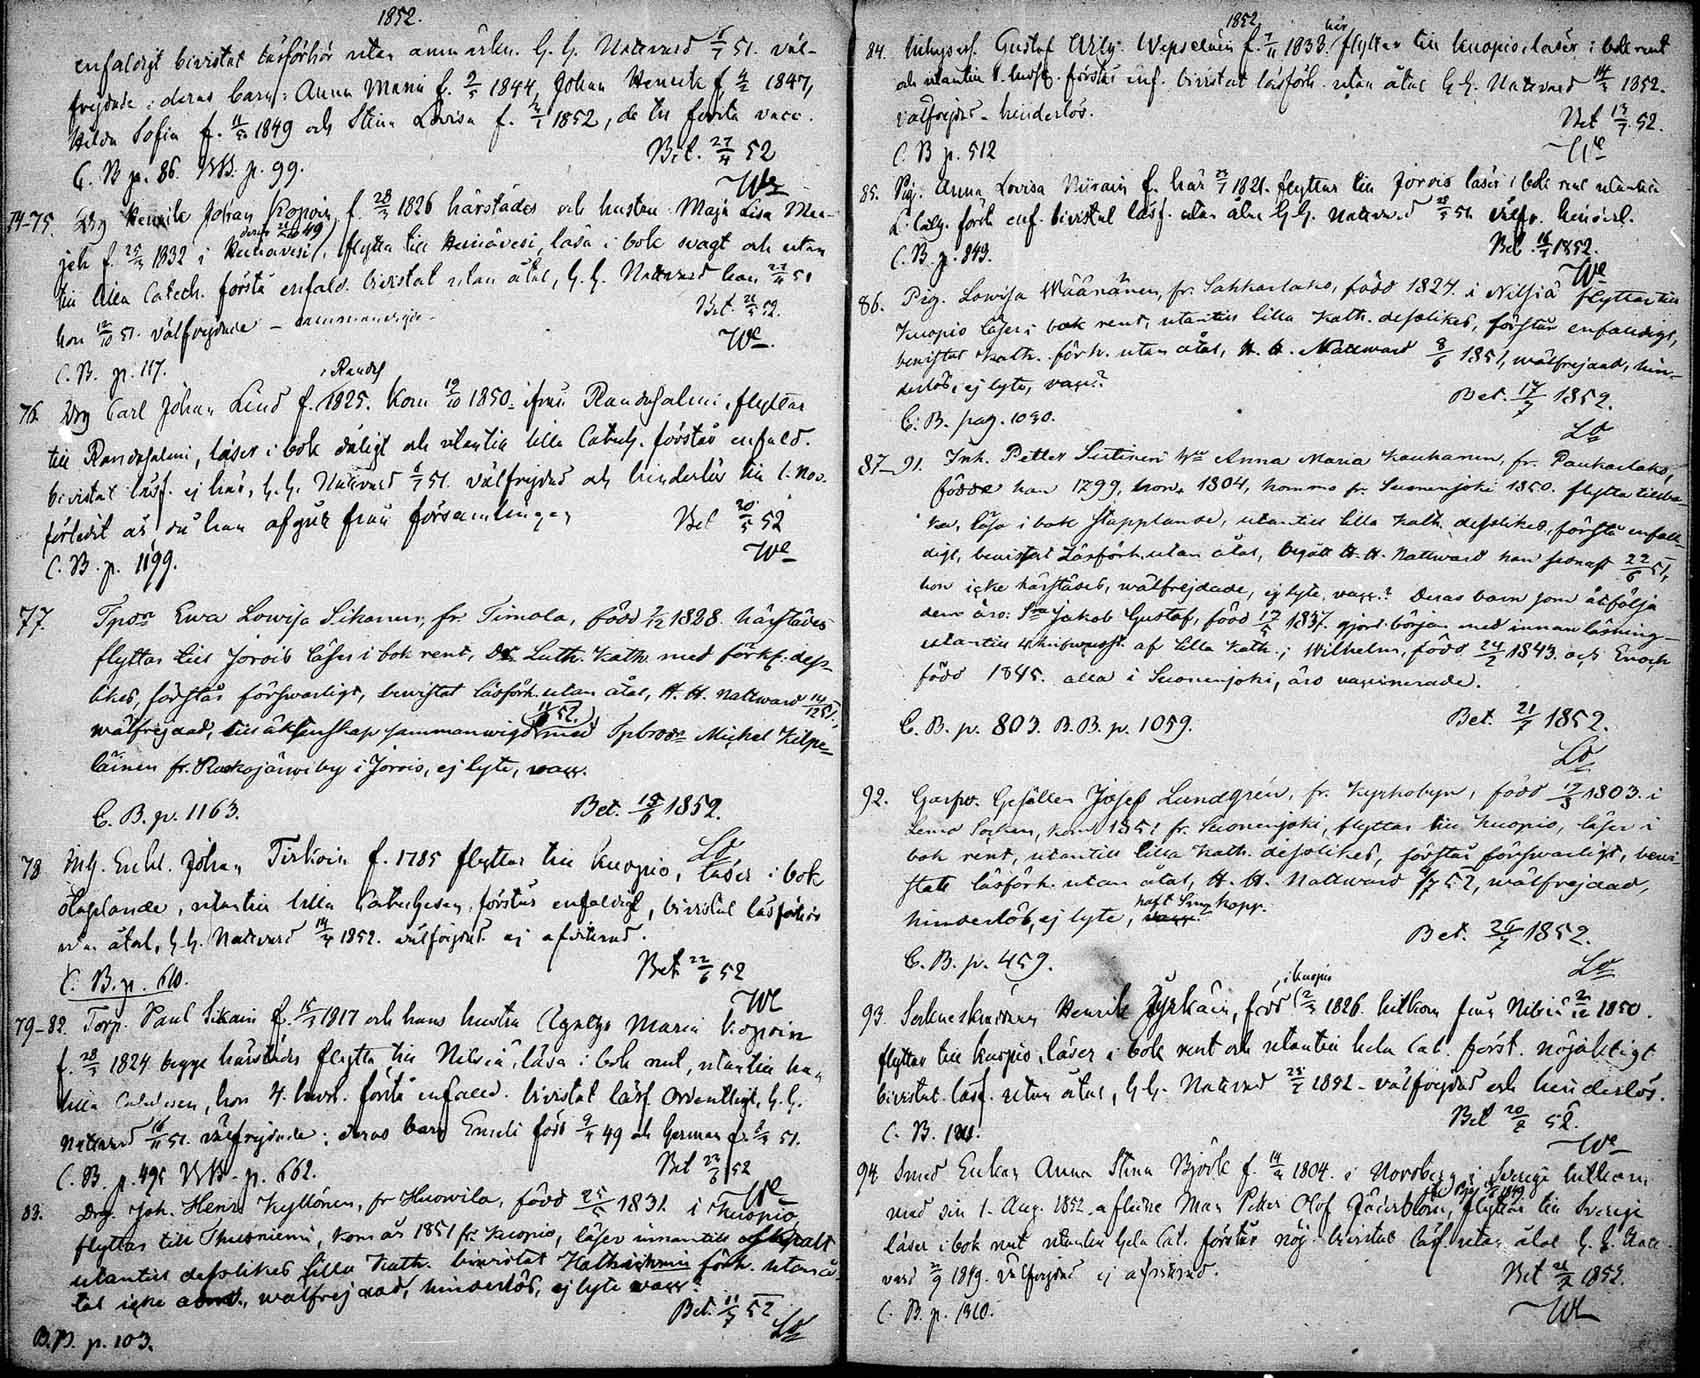 1852.
enfaldigt bivistat läsförhör utan anmärkn. H. H. Nattvard 6/7 51. väl-
frejdade; deras barn: Anna Maria f. 9/5 1844, Johan Henrik f. 4/2 1847,
Hilda Sofia f. 11/5 1849 och Stina Lovisa f. 1852, de tre första vacc.
C. B. p. 86. BB. p. 99.
Bet. 27/4 52
74-75. Drg Henrik Johan Kopoin, f. 28/3 1826 härstädes och hustru Maja Lisa
f. 25/3 1832 i Heinävesi, flytta till Heinävesi, läsa i bok svagt och utan
till lilla Catech. förstå enfald. bivistat utan åtal, H. H. Nattvard han 27/4 51
hon 12/10 51. välfrejdade
Bet. 21/5 52.
C. B. p. 117.
76. Drg Carl Johan Lind f. 1825. kom 19/10 1850 ifrån Randasalmi, flyttar
till Randasalmi, läser i bok dåligt och utantill lilla Catech. förstår enfald.
bivistat läsf. ej här, H. H. Nattvard 51. välfrejdad och hinderlös till 1. Nov.
förledit år, då han afgick från församlingen
Bet 20/5 52
C. B. p. 1199.
77. Ewa Lowisa Sikanen, fr. Timola, född 2/12 1828 härstädes
flyttar till Jorois läser i bok rent, Dr. Luth. Kath. med förkl. dess-
likes, förstår försvarligt, bewistat läsförh. utan åtal, H. H. nattward 14/12 51,
wälfrejdad, till äktenskap sammanwigd med Michel Kilpe-
läinen fr. Ruokojärwi by i Jorois, ej lyte, vacc.
C. B. p. 1163.
Bet. 15/6 1852.
78 Inh. Enkl. Johan Tirkoin f. 1785 flyttar till Kuopio, läser i bok
stapplande, utantill lilla Catechesen, förstår enfaldigt, bivistat läsförhör
utan åtal, H. H. Nattvard 14/3 1852. välfrejdad ej afvittrad.
C. B. p. 610.
Bet 22/6 52
79-82. Torp. Paul Sikain f. 15/3 1817 och hans hustru Agneta Maria Kopoin
f. 28/3 1824 begge härstädes flytta till Nilsiä, läsa i bok rent, utantill han
lilla Catechesen, hon 4. hvst. förstå enfald. bivistat läsf. ordentligt, H. H.
Nattvard 16/11 51. välfrejdade; deras barn Enok född 9/4 49 och Herman f. 51.
C. B. p. 495 BB. p. 662.
Bet 23/6 52
83. Drg. Joh. Henr. Kyllönen, fr Huowila, född 25/5 1831. i Kuopio,
flyttar till Thusniemi, kom år 1851 fr. Kuopio, läser innantill
utantill desslikes lilla Kath. bewistat förh. utan å-
tal icke, wälfrejdad, hinderlös, ej lyte vacc.
Bet. 11/7 52
B.B. p. 103.
1852
84. Gustaf Wilh. Wepsäläin f. 7/11 1833. här flyttar till Kuopio, läser i bok rent
och utantill förstår enf. bivistat läsförh. utan åtal H. H. Nattvard 14/3 1852.
välfrejdad - hinderlös.
Bet 13/7 52.
C. B p. 512
85. Pig. Anna Lovisa f. här 1821. flyttar till Jorois läser i bok rent utantill
L. Cat. först. enf. bivistat läsf. utan åtal H. H. Nattvard 51 välfr. hinderl.
Bet. 16/7 1852.
C. B. p. 843.
86. Pig. Lowisa Wäänänen, fr. Sakkarlaks, född 1824. i Nilsiä flyttar till
Kuopio läser i bok rent, utantill lilla Kath. desslikes, förstår enfaldigt,
bewistat Kath. förh. utan åtal, H. H. Nattward 8/6 1851, wälfrejdad, hin-
derlös, ej lyte, vacc?
Bet. 17/7 1852.
C. B. pag. 1030.
87-91. Inh. Petter Anna Maria Kauhanen, fr. Paukarlaks,
födde han 1799, hon 1804, komne fr. Suonenjoki 1850. flytta tillba-
ka, läsa i bok stapplande, utantill lilla Kath. desslikes, förstå enfal-
digt, bewistat Läsförh. utan åtal, begått H. H. Nattward han sednast 22/6 51,
hon icke härstädes, wälfrejdade, ej lyte, vacc? Deras barn som åtfölja
dem äro: Sn Jakob Gustaf, född 17/5 1837. gjort början med innanläsning
utantill af lilla Kath.; Wilhelm, född 24/2 1843. och Enoch
född 1845. alla i Suonenjoki, äro vaccinerade.
C. B. p. 803. B.B. p. 1059.
Bet. 21/7 1852.
92. Garfw. Gesällen Josef Lundgrén, fr. Kyrkobyn, född 17/3 1803. i
Lemo Socken, kom 1851 fr. Suonenjoki, flyttar till Kuopio, läser i
bok rent, utantill lilla Kath. desslikes, förstår försvarligt, bewi-
stat läsförh. utan åtal, H. H. Nattward 52, wälfrejdad,
hinderlös, ej lyte, haft Smg kopp.
Bet. 26/7 1852.
C. B. p. 459.
93. Sockneskräddaren Henrik Jyrkäin, född i Kuopio 2/3 1826. hitkom från Nilsiä 1850.
flyttar till Kuopio, läser i bok rent och utantill hela Cat. först. nöjaktigt
bivistat läsf. utan åtal, H. H. Nattvard 25/7 1852. välfrejdad och hinderlös.
Bet 20/8 52.
C. B.
94. Smed Enkan Anna Stina Björk f. 14/2 1804. i Norrberg i Sverige hitkom
med sin 1. Aug. 1852. aflidne Man Petter Olof Söderblom, flyttar till Sverige
läser i bok rent utantill hela Cat. förstår nöj. bivistat läsf. utan åtal H. H. Natt-
vard 1849. välfrejdad ej afvittrad.
Bet 1852.
C. B. p. 1310.